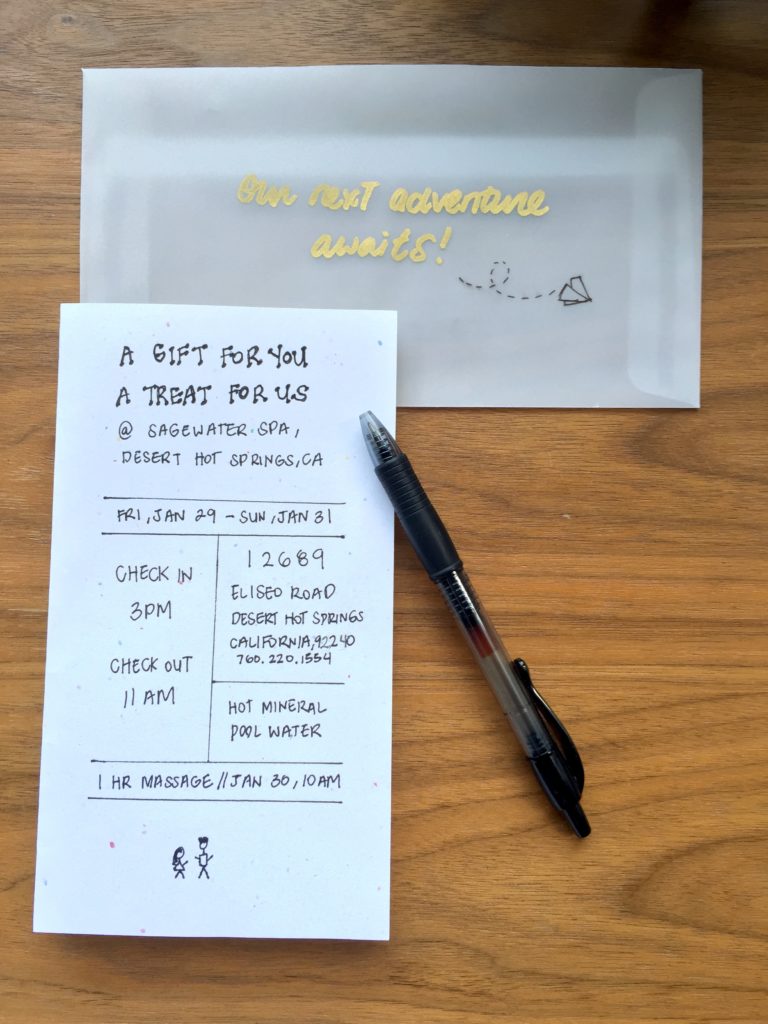 Our next adventure
awaits!
A GIFT FOR YOU
A TREAT FOR US
@ SAGEWATER SPA,
DESERT HOT SPRINGS, CA
FRI, JAN 29 - SUN, JAN 31
CHECK IN
3PM
CHECK OUT
11 AM
12689
ELISEO ROAD
DESERT HOT SPRINGS
CALIFORNIA, 92240
760.220.1554
HOT MINERAL
POOL WATER
1 HR MASSAGE // JAN 30, 10AM